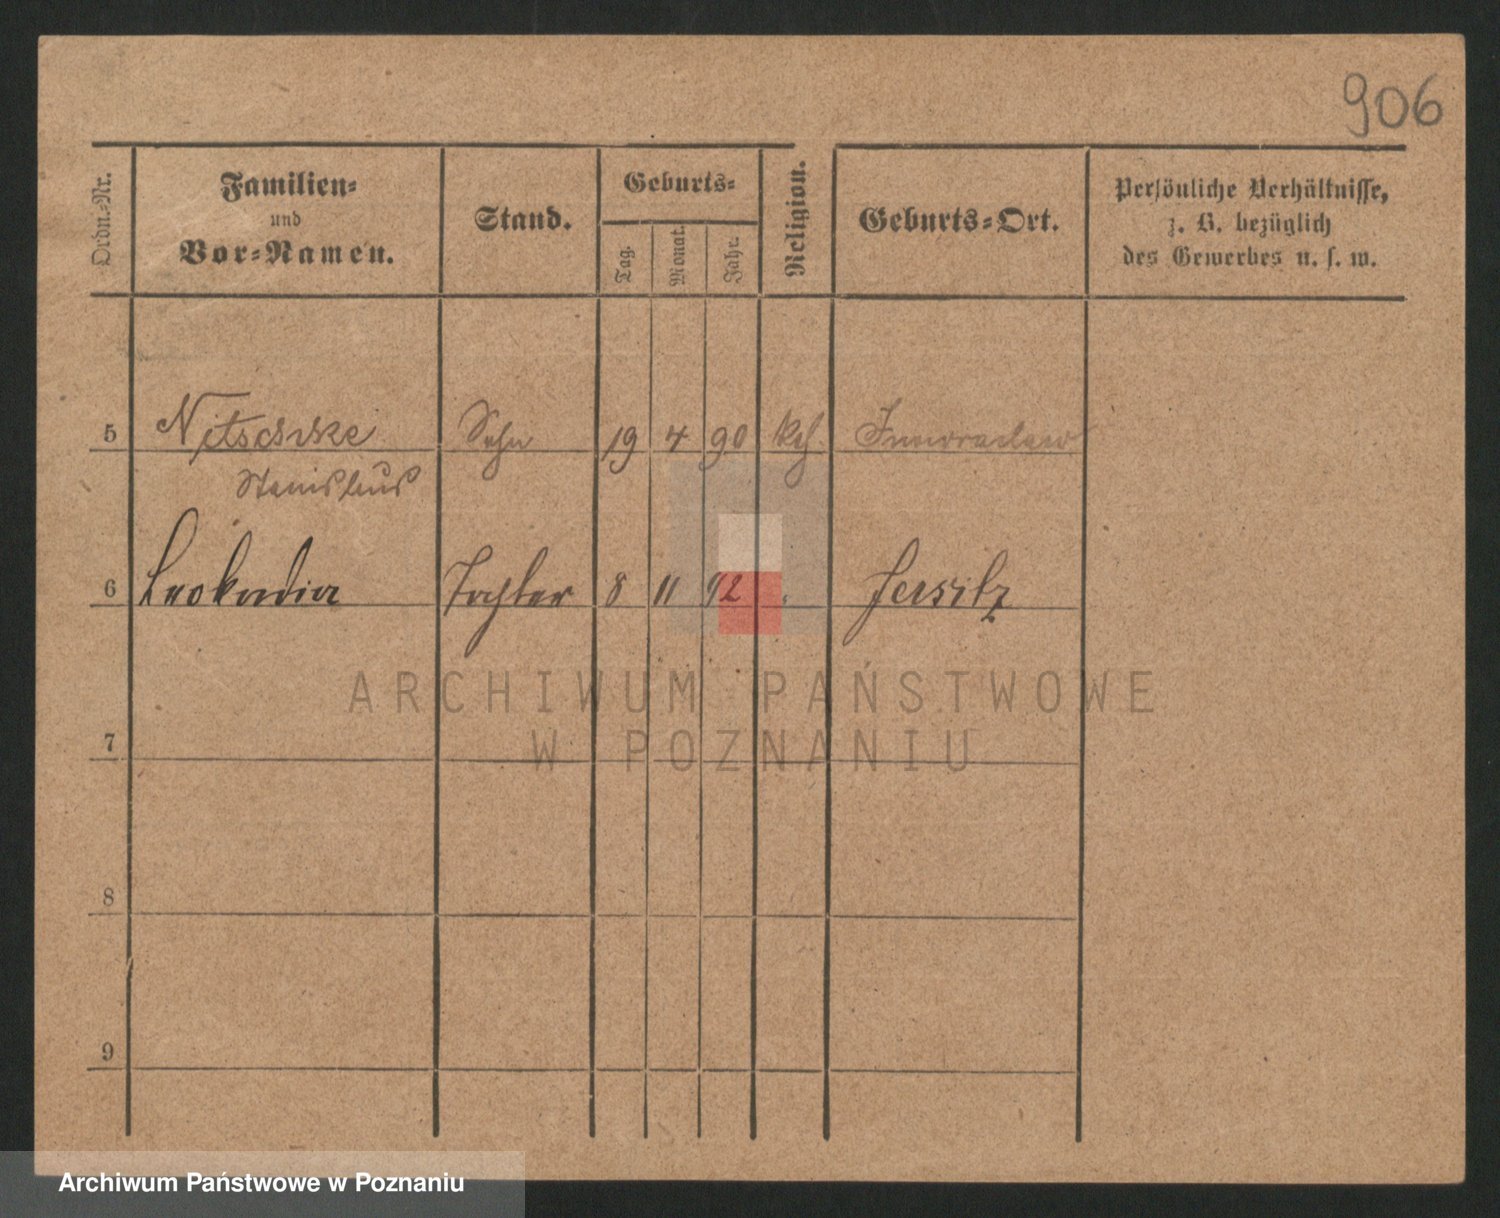 906
Ordn.-Nr.
Familien-
und
Vor-Namen.
Stand.
Geburts-
Tag.
Monat.
Jahr.
Religion.
Geburts-Ort.
Persönliche Verhältnisse,
z. B. bezüglich
des Gewerbes u. s. w.
5 Nitschke Sohn 19 4 90 kth Inowraclaw
Stanislaus
6 Leokadia Tochter 8 11 92 Jersitz
ARCHIWUM PAŃSTWOWE
W POZNANIU
7
8
9
Archiwum Państwowe w Poznaniu